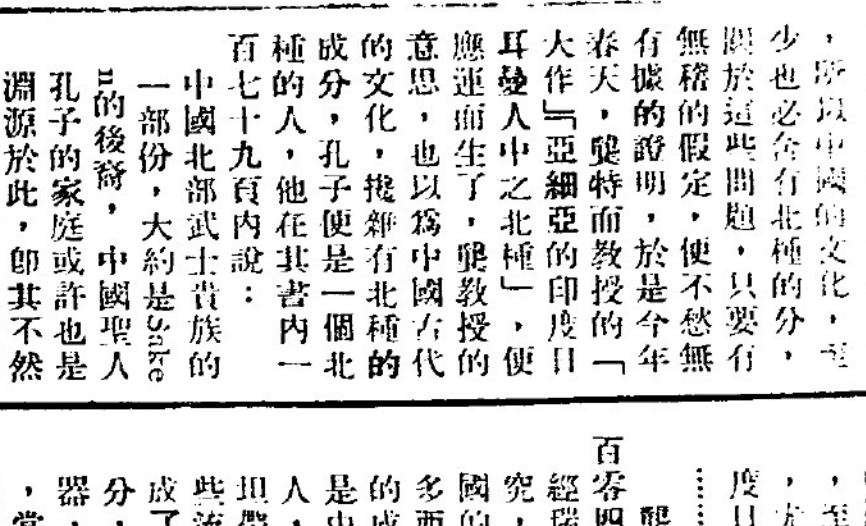 ，所以中國的文化，至
少也必含有北種的分，
關於這些問題，只要有
無稽的假定，便不愁無
有據的證明，於是今年
春天，龔特而教授的「
大作『亞細亞的印度日
耳曼人中之北種」，便
應運而生了，龔教授的
意思，也以爲中國古代
的文化，攙雜有北種的
成分，孔子便是一個北
種的人，他在其書內一
百七十九頁內說：
中國北部武士貴族的
一部份，大約是Sake
n的後裔，中國聖人
孔子的家庭或許也是
淵源於此，卽其不然
度
龔
百零四
經瑞
究，
國的
多西
是中
人，
坦
些
成了
分，
器，
，當